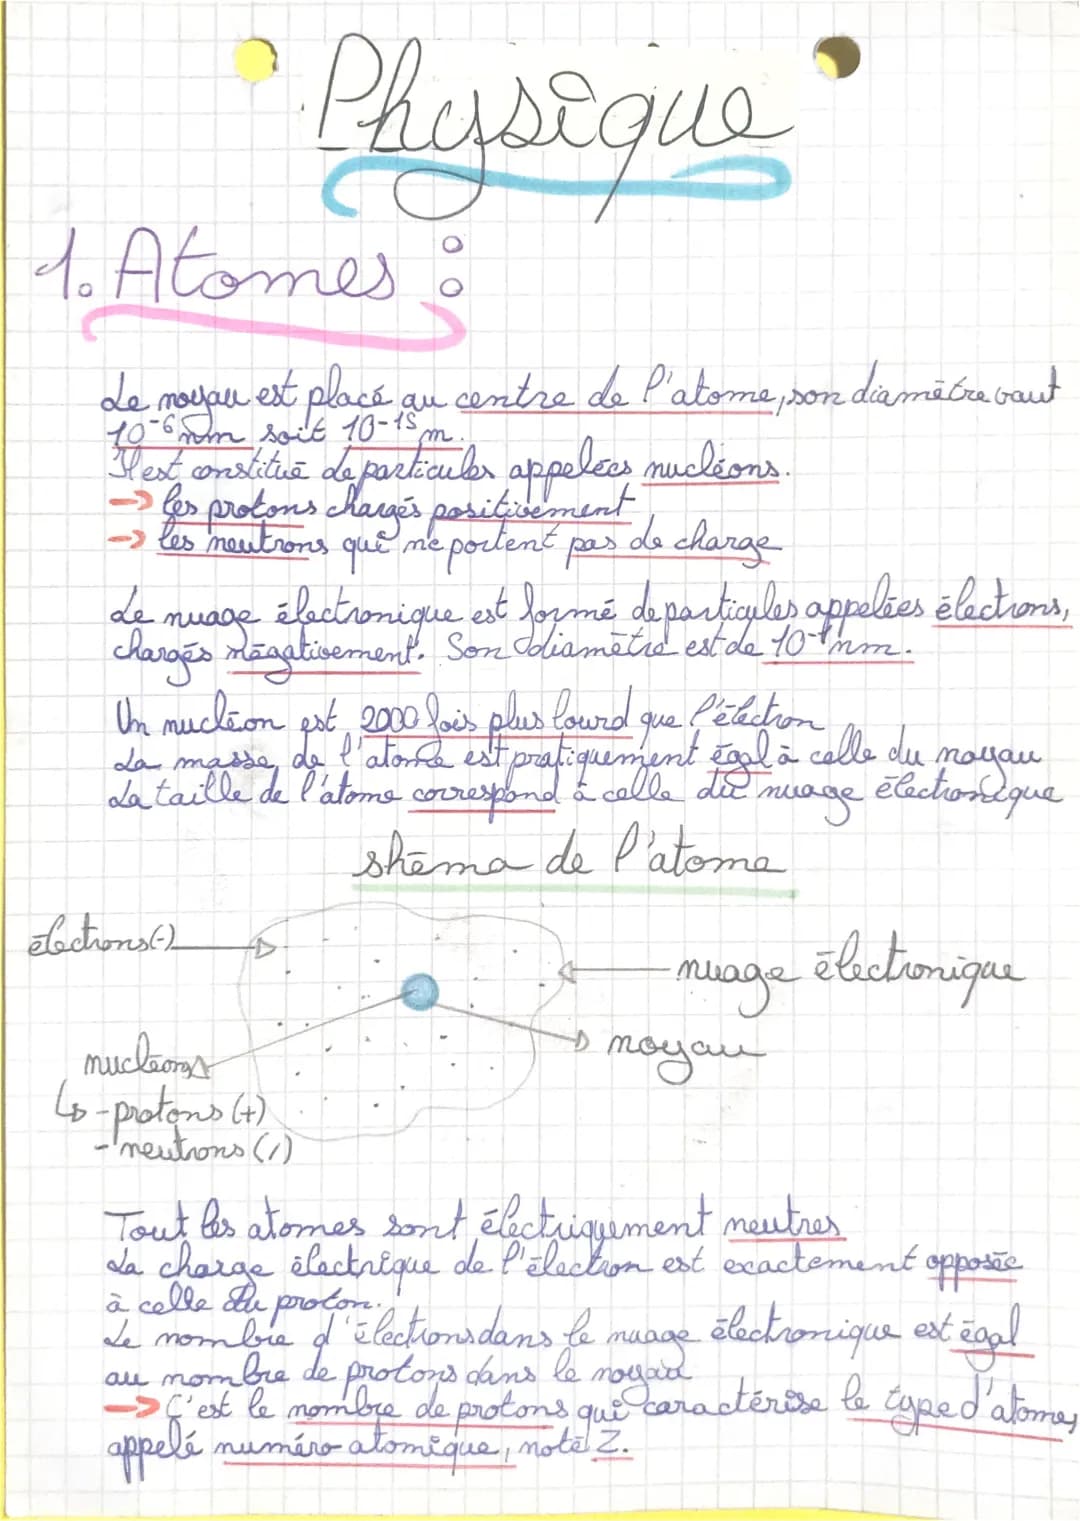 Physique
1. Atomes :
Le noyau est placé au centre de l'atome, son diamètre vaut
10⁻⁶ nm soit 10⁻¹⁵ m.
Il est constitué de particules appelées nucléons.
→ les protons chargés positivement
→ les neutrons qui ne portent pas de charge
Le nuage électronique est formé de particules appelées électrons,
chargés négativement. Son diamètre est de 10⁻¹ nm.
Un nucléon est 2000 fois plus lourd que l'électron
La masse de l'atome est pratiquement égal à celle du noyau
La taille de l'atome correspond à celle du nuage électronique
shéma de l'atome
électrons (-)
nuage électronique
noyau
nucléons
↳ - protons (+)
- neutrons (/)
Tout les atomes sont électriquement neutres
La charge électrique de l'électron est exactement opposée
à celle du proton.
Le nombre d'électrons dans le nuage électronique est égal
au nombre de protons dans le noyau
→ C'est le nombre de protons qui caractérise le type d'atomes,
appelé numéro atomique, noté Z.